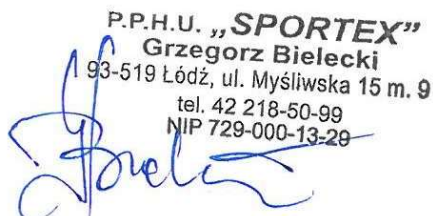 P.P.H.U. „SPORTEX”
Grzegorz Bielecki
93-519 Łódź, ul. Myśliwska 15 m. 9
tel. 42 218-50-99
NIP 729-000-13-29